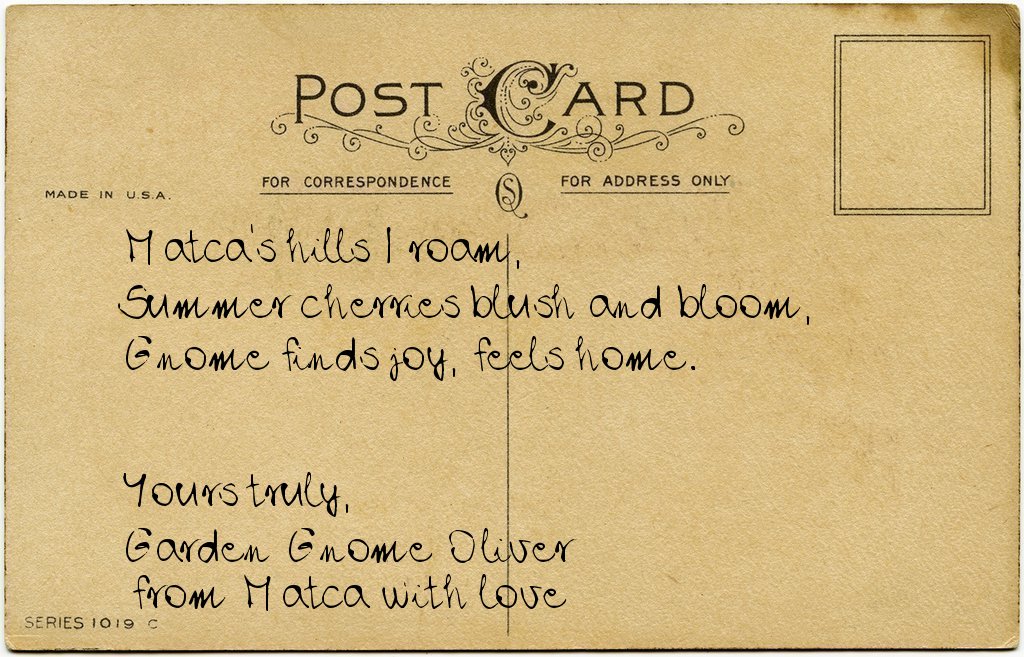 POST CARD
FOR CORRESPONDENCE
FOR ADDRESS ONLY
MADE IN U.S.A.
Matca's hills I roam,
Summer cherries blush and bloom,
Gnome finds joy, feels home.
Yours truly,
Garden Gnome Oliver
from Matca with love
SERIES 1019 C